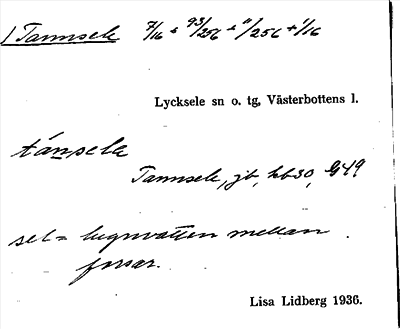 1 Tannsele 7/16 + 93/256 + 11/256 + 1/16
Lycksele sn o. tg, Västerbottens l.
tánsela
Tannsele, jb, kb 30, G49
sel = lugnvatten mellan
forsar.
Lisa Lidberg 1936.